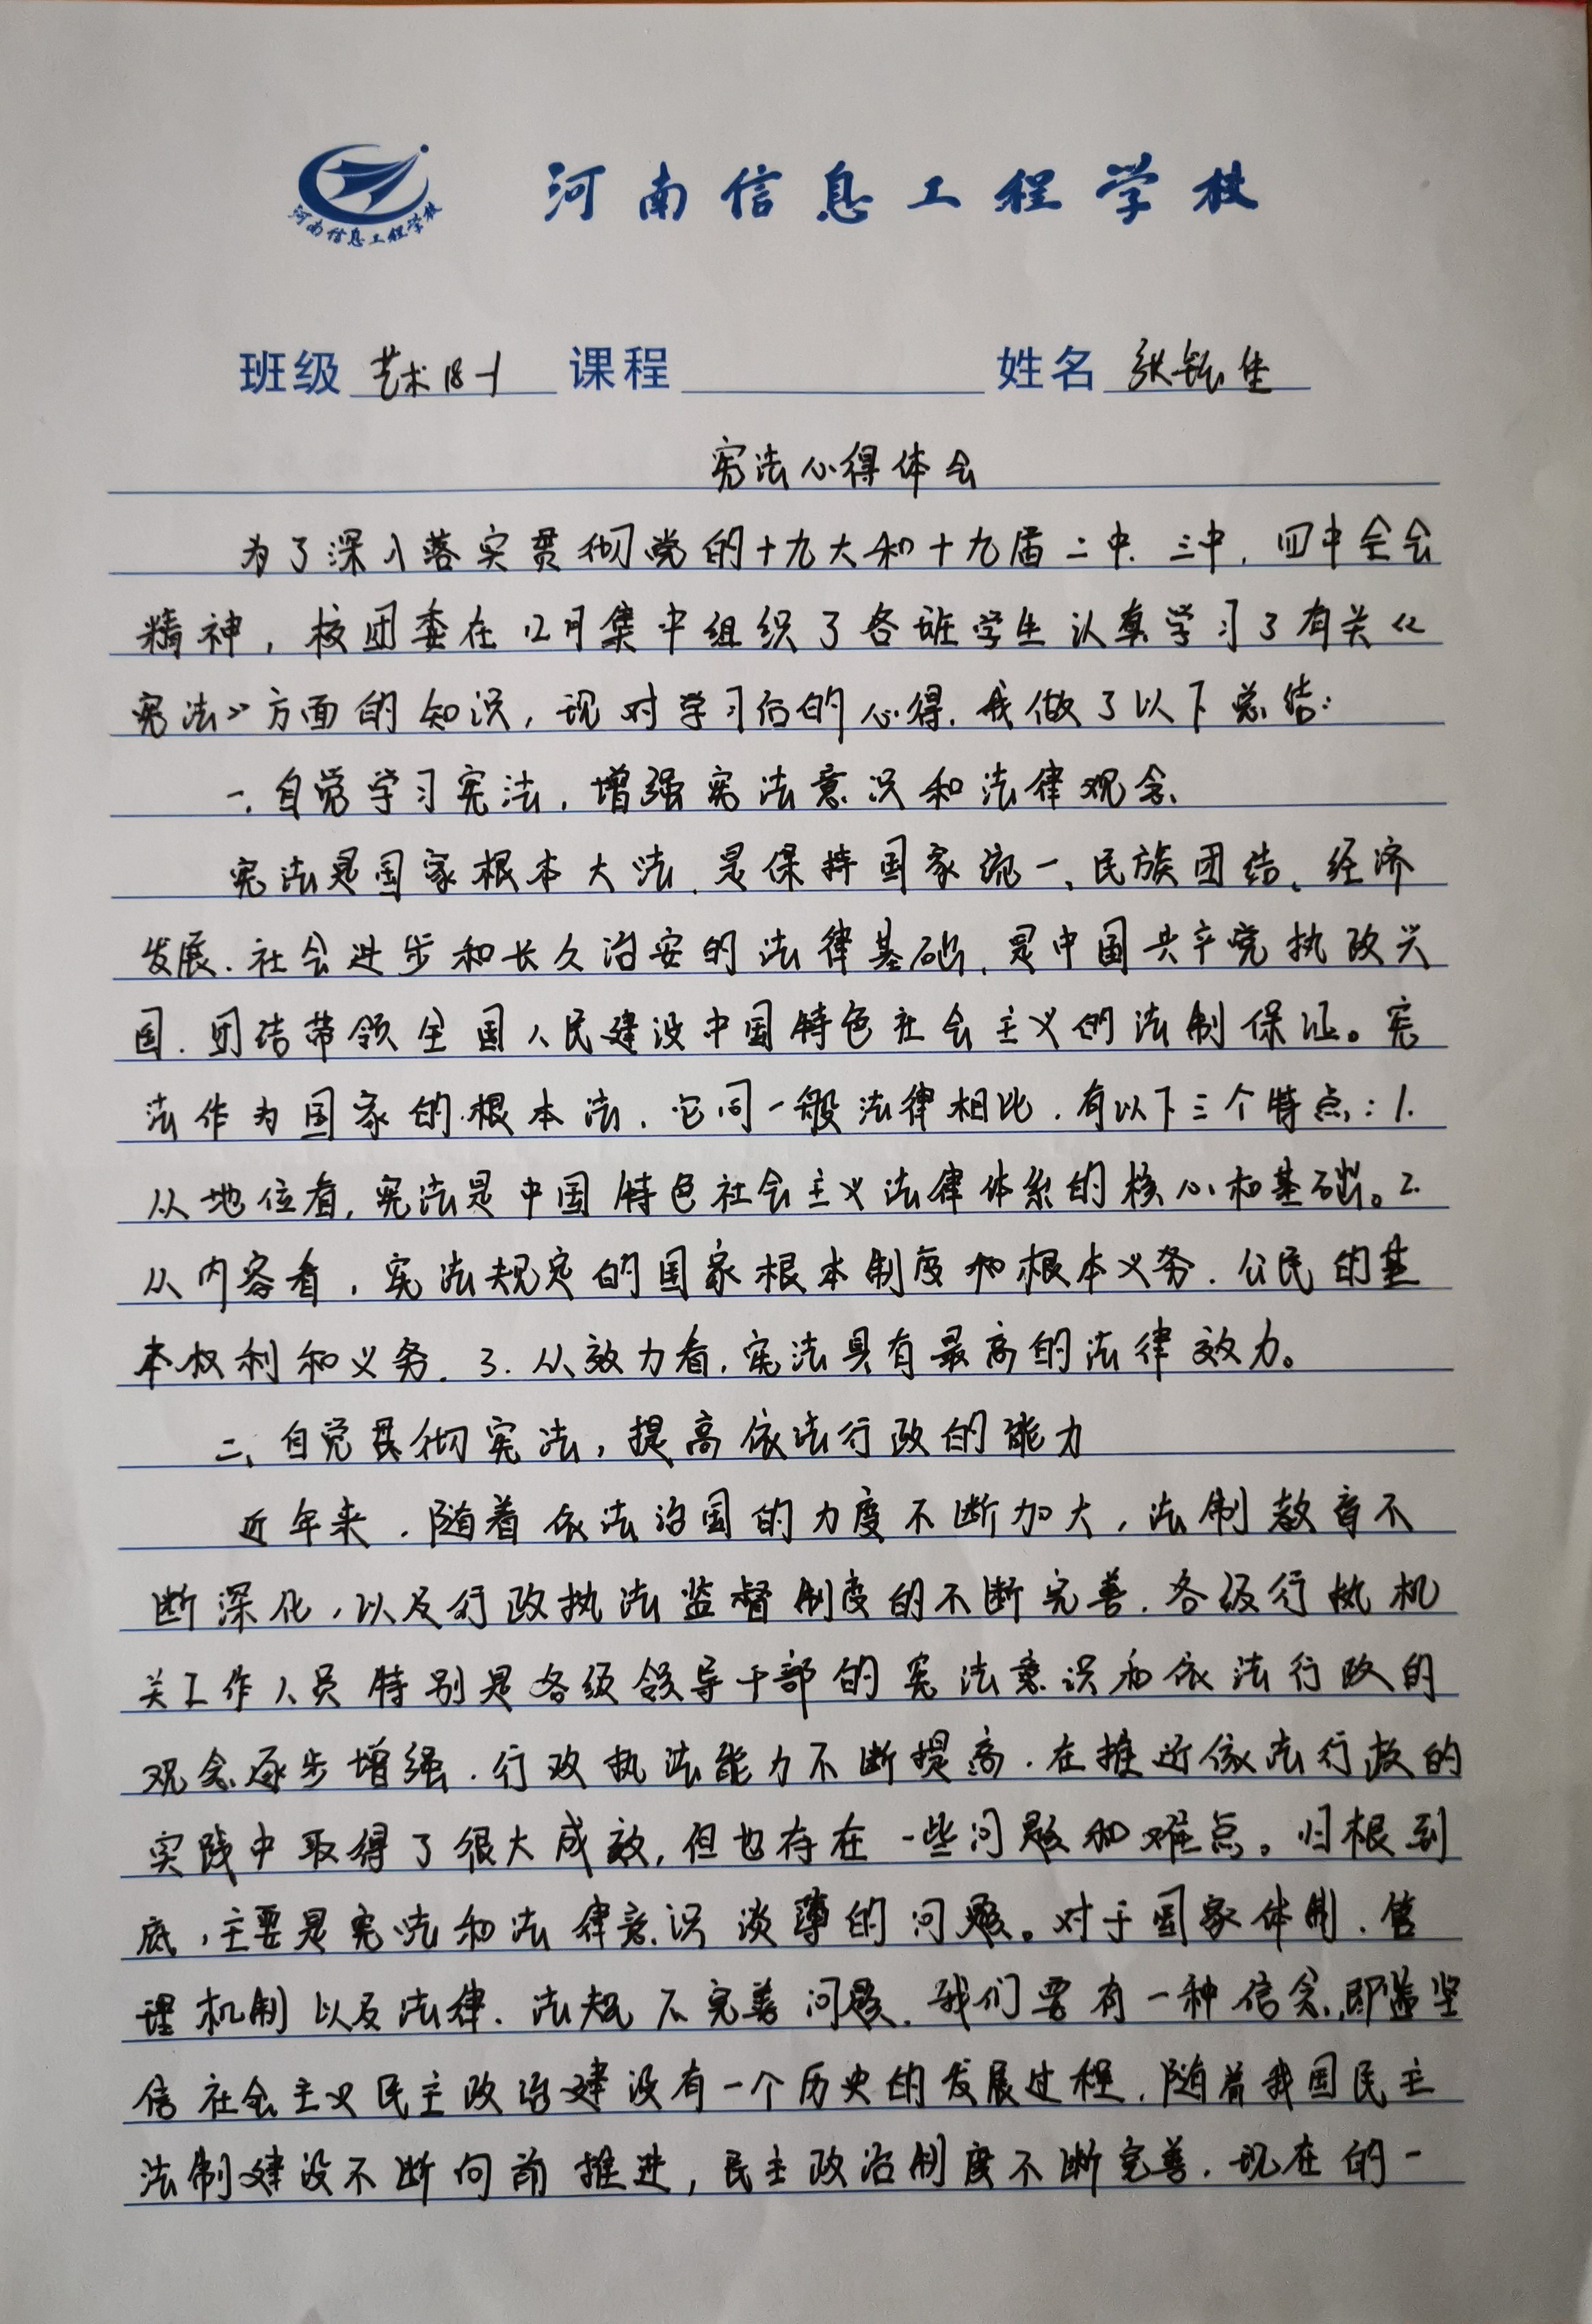 河南信息工程学校
河南信息工程学校
班级 艺术18-1 课程 姓名 张钰佳
宪法心得体会
为了深入落实贯彻党的十九大和十九届二中.三中,四中全会
精神,校团委在12月集中组织了各班学生认真学习了有关《
宪法》方面的知识,现对学习后的心得.我做了以下总结:
一、自觉学习宪法,增强宪法意识和法律观念
宪法是国家根本大法.是保持国家统一、民族团结、经济
发展.社会进步和长久治安的法律基础.是中国共产党执政兴
国.团结带领全国人民建设中国特色社会主义的法制保证。宪
法作为国家的根本法.它同一般法律相比.有以下三个特点:1.
从地位看,宪法是中国特色社会主义法律体系的核心和基础。2.
从内容看,宪法规定的国家根本制度和根本义务.公民的基
本权利和义务.3.从效力看,宪法具有最高的法律效力。
二、自觉贯彻宪法,提高依法行政的能力
近年来.随着依法治国的力度不断加大,法制教育不
断深化,以及行政执法监督制度的不断完善.各级行执机
关工作人员特别是各级领导干部的宪法意识和依法行政的
观念逐步增强.行政执法能力不断提高.在推近依法行政的
实践中取得了很大成效,但也存在一些问题和难点。归根到
底,主要是宪法和法律意识淡薄的问题。对于国家体制.管
理机制以及法律.法规不完善问题.我们要有一种信念,即坚
信社会主义民主政治建设有一个历史的发展过程.随着我国民主
法制建设不断向前推进,民主政治制度不断完善.现在的一